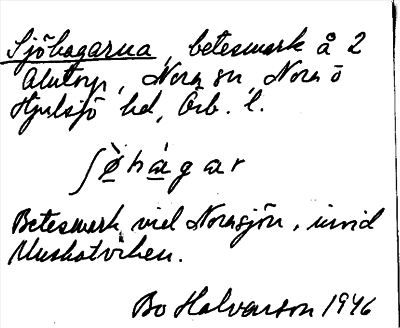 Sjöhagarna, betesmark å 2
Alntorp, Nora sn, Nora o
Hjulsjö hd, Örb. l.
ʃø̀hágar
Betesmark vid Norasjön, invid
Muskotviken.
Bo Halvarson 1946